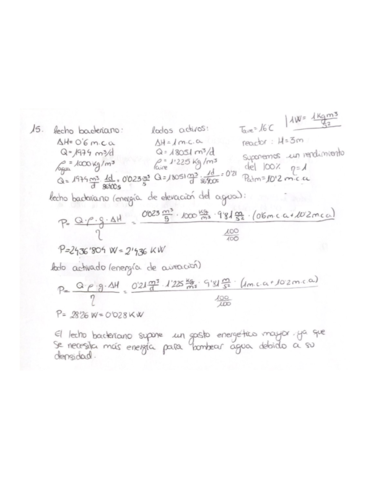 15. lecho bacteriano:
ΔH = 0'6 m.c.a
Q = 1974 m³/d
ρ agua = 1000 kg/m³
Q = 1974 m³/d · 1d/86400s = 0'023 m³/s
lodos activos:
ΔH = 1 m.c.a
Q = 18051 m³/d
ρ aire = 1'225 kg/m³
Q = 18051 m³/d · 1d/86400s = 0'21
Taire = 16ºC
reactor: H = 3m
suponemos un rendimiento
del 100% η = 1
Patm = 10'2 m c a
1W = 1 kg m²/s³
lecho bacteriano (energía de elevación del agua):
P = Q · ρ · g · ΔH / η = 0'023 m³/s · 1000 kg/m³ · 9'81 m/s² · (0'6 m c a + 10'2 m c a) / 100/100
P = 2436'804 W = 2'436 KW
lodo activado (energía de aireación)
P = Q · ρ · g · ΔH / η = 0'21 m³/s · 1'225 kg/m³ · 9'81 m/s² · (1 m c a + 10'2 m c a) / 100/100
P = 28'26 W = 0'028 KW
El lecho bacteriano supone un gasto energético mayor ya que
se necesita más energía para bombear agua debido a su
densidad.